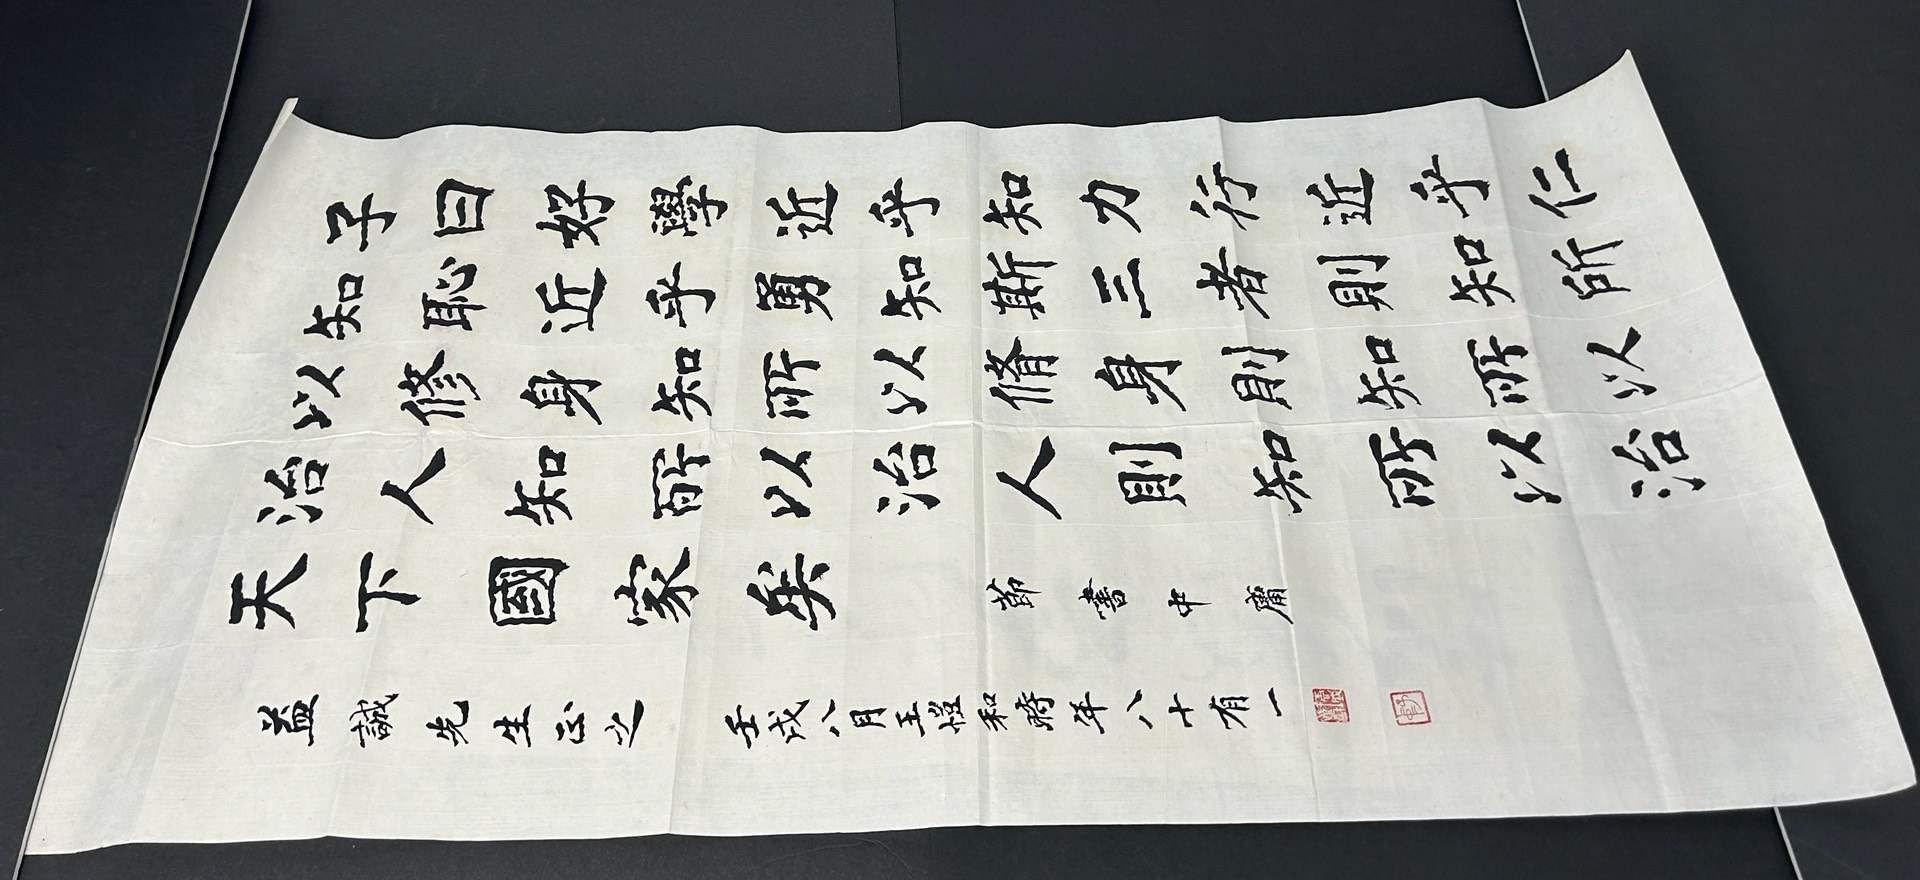 子曰好學近乎知力行近乎仁
知恥近乎勇知斯三者則知所
以修身知所以脩身則知所以
治人知所以治人則知所以治
天下國家矣 節書中庸
益誠先生正之 壬戌八月王愷和時年八十有一